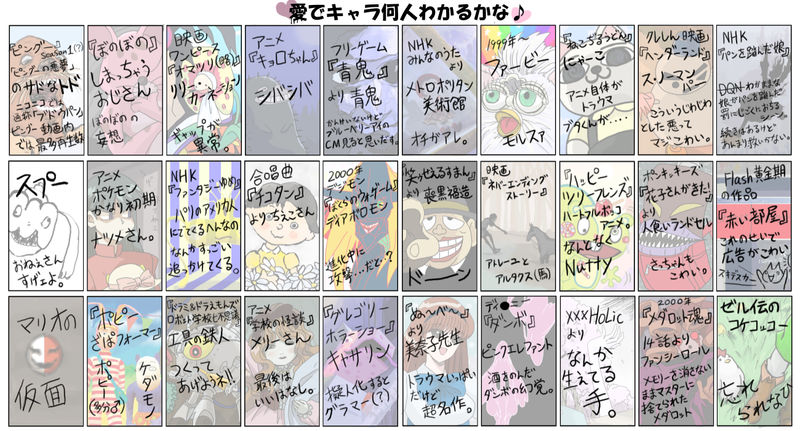 愛でキャラ何人わかるかな♪
『ピングー』
Season1(?)
『ピングーの悪夢』
のサドなトド
ニコニコでは
ピングー動画内
では最多再生数
『ぼのぼの』
しまっちゃう
おじさん
ぼのぼのの
妄想
映画
ワンピース
『オマツリ(略)』
リリー・カーネーション
ギャップが
異常。
アニメ
『キョロちゃん』
シバシバ
フリーゲーム
『青鬼』
より青鬼
かんけいないけど
ブルーベリーアイの
CM見ると思いだす。
NHK
みんなのうた
より
メトロポリタン
美術館
オチがアレ。
1999年
ファービー
モルスァ
『ねこぎらうどん』
にゃーご
アニメ自体が
トラウマ
ブタくんが…
クレしん映画
『ヘンダーランド』
ス・リーマン
パー
こういうじわじわ
とした悪って
マジこわい。
NHK
『パンを踏んだ娘』
DQNわがままな
娘がパンを踏んだ
罰にじごくにおちる
シーン
続きあるけど
あんまり救いがない。
スプー
おねえさん
すげェよ。
アニメ
ポケモン
かなり初期
ナツメさん。
NHK
『ファンタジーゆめ』
パリのアメリカ人
にでてくるへんなの
なんかすっごい
追っかけてくる。
合唱曲
『チコタン』
よりちえこさん
2000年
デジモン
『ぼくらのウォーゲーム』
ディアボロモン
進化中に
攻撃…だと…?
『笑ゥせぇるすまん』
より喪黒福造
ドーーン
映画
『ネバーエンディング
ストーリー』
アトレーユと
アルタクス(馬)
『ハッピー
ツリーフレンズ』
ハートフルボッコ
アニメ。
なんとなく
Nutty
ポンキッキーズ
『花子さんがきた!』
より
人食いランドセル
さっちゃんも
こわい。
Flash黄金期
の作品
『赤い部屋』
これのせいで
広告がこわい
スキデスカー
マリオの
仮面
『ポピー
ざぱフォーマー』
ポピー
(多分♂)
ケダモノ
『ドラミ&ドラえもんズ
ロボット学校七不思議』
工具の鉄人
つくって
あげようネ!!
アニメ
『学校の怪談』
メリーさん
最後は
いいはなし。
『グレゴリー
ホラーショー』
キャサリン
擬人化すると
グラマー(?)
『ぬ〜べ〜』
より
美奈子先生
トラウマいっぱい
だけど
超名作。
ディ●ニー
『ダンボ』
ピンクエレファント
酒をのんだ
ダンボの幻覚。
xxxHoLic
より
なんか
生えてる
手。
2000年
『メダロット魂』
14話より
ファンシーロール
メモリーを消さない
ままマスターに
捨てられた
メダロット
ゼル伝の
コケコッコー
忘れ
られなひ